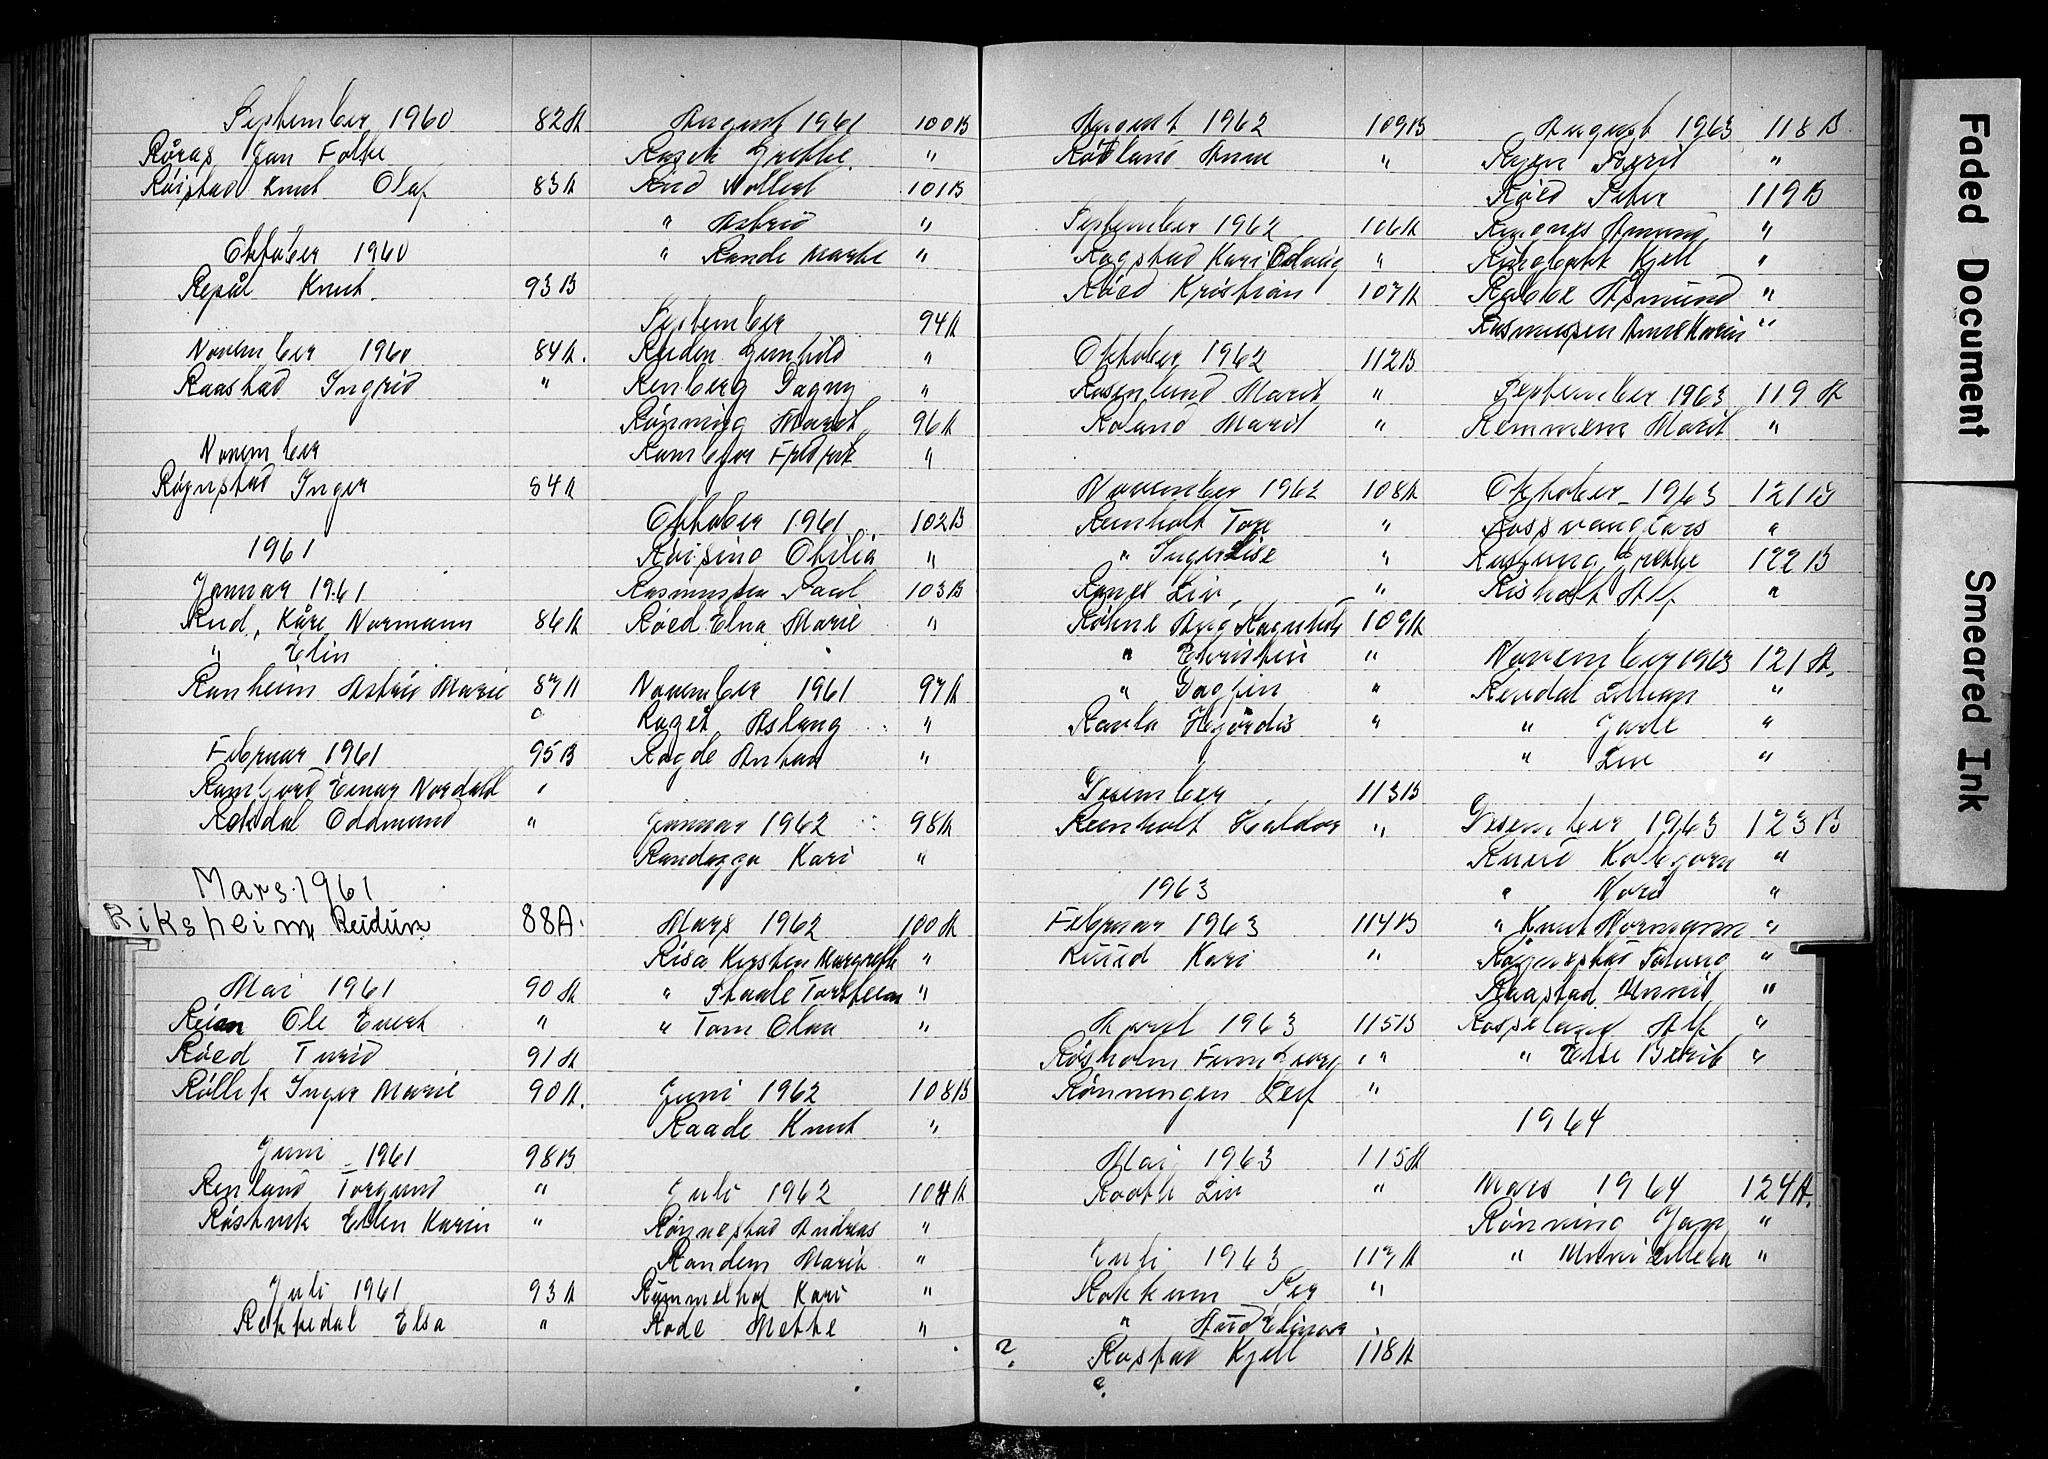 September 1960 82A
Røras Jan Folke
Røistad Knut Olaf 83A
Oktober 1960
Repål Knut 93B
November 1960 84A.
Raastad Ingrid "
November
Røgnstad Inger 84A
1961
Januar 1961
Rud, Kåre Normann 86A
" Elin
Ranheim Astrid Marie 87A
Februar 1961 95B
Ramfjord Einar Nordahl "
Rekdal Oddmund "
Mars 1961
Riksheim Reidun 88A.
Mai 1961 90A
Reian Ole Evert "
Røed Turid 91A
Inger Marie 90A.
Juni 1961 98B
Renland Torgund "
Røstvik Ellen Karin "
Juli 1961 93A
Rekkedal Elsa "
August 1961 100B
Rasch Grethe "
Rud 101B
" Astrid "
" Rande Marte "
September 94A
Ruden Gunhild "
Renberg Dagny "
Rønning Marit 96A
Fredrik "
Oktober 1961 102B
Otilia "
Rasmussen Paul 103B
Røed Elna Marie "
November 1961 97A
Aslaug "
Ragde Anton "
Januar 1962 98A
Kari "
Mars 1962 100A
Risa Kirsten Margrethe "
" Staale Torstein "
" Tom Olav "
Juni 1962 108B
Raade Knut "
Juli 1962 104A
Rønnestad Andreas "
Randem Marit "
Rømmelhof Kari "
Rode Mette "
August 1962 109B
Rødland Anne "
September 1962 106A
Rogstad Kari Solveig "
Røed Kristian 107A
Oktober 1962 112B
Rosenlund Marit "
Roland Marit "
November 1962 108A
Reinholt Tore "
" Inger Lise "
Liv "
Røhne Aug Ragnhild 109A
" Christin "
" Dagfin "
Ravla Hjørdis "
Desember 113B
Reinholt Haldor "
1963
Februar 1963 114B
Ruud Kari "
April 1963 115B
Røsholm Finn "
Rønningen Leif "
Mai 1963 115A
Liv "
Juli 1963 117A
Rokkum Per "
"
? Rostad Kjell 118A
August 1963 118B
"
Røed Peter 119B
Ringnes Amund "
Kjell "
Rabbe Asmund "
Rasmussen Anne Karin "
September 1963 119A
Remmem Marit "
Oktober 1963 121B
Rossvang Lars "
Grethe 122B
Risholt Alf "
November 1963 121A.
Rendal Lillian "
" Jarle "
" Liv "
Desember 1963 123B
Ruud Kolbjørn "
" Nora "
" Knut "
"
Raastad Unni "
Rosseland Alf "
" Else Berit "
1964
Mars 1964 124A.
Rønning Jan "
" "
Faded Document
Smeared Ink